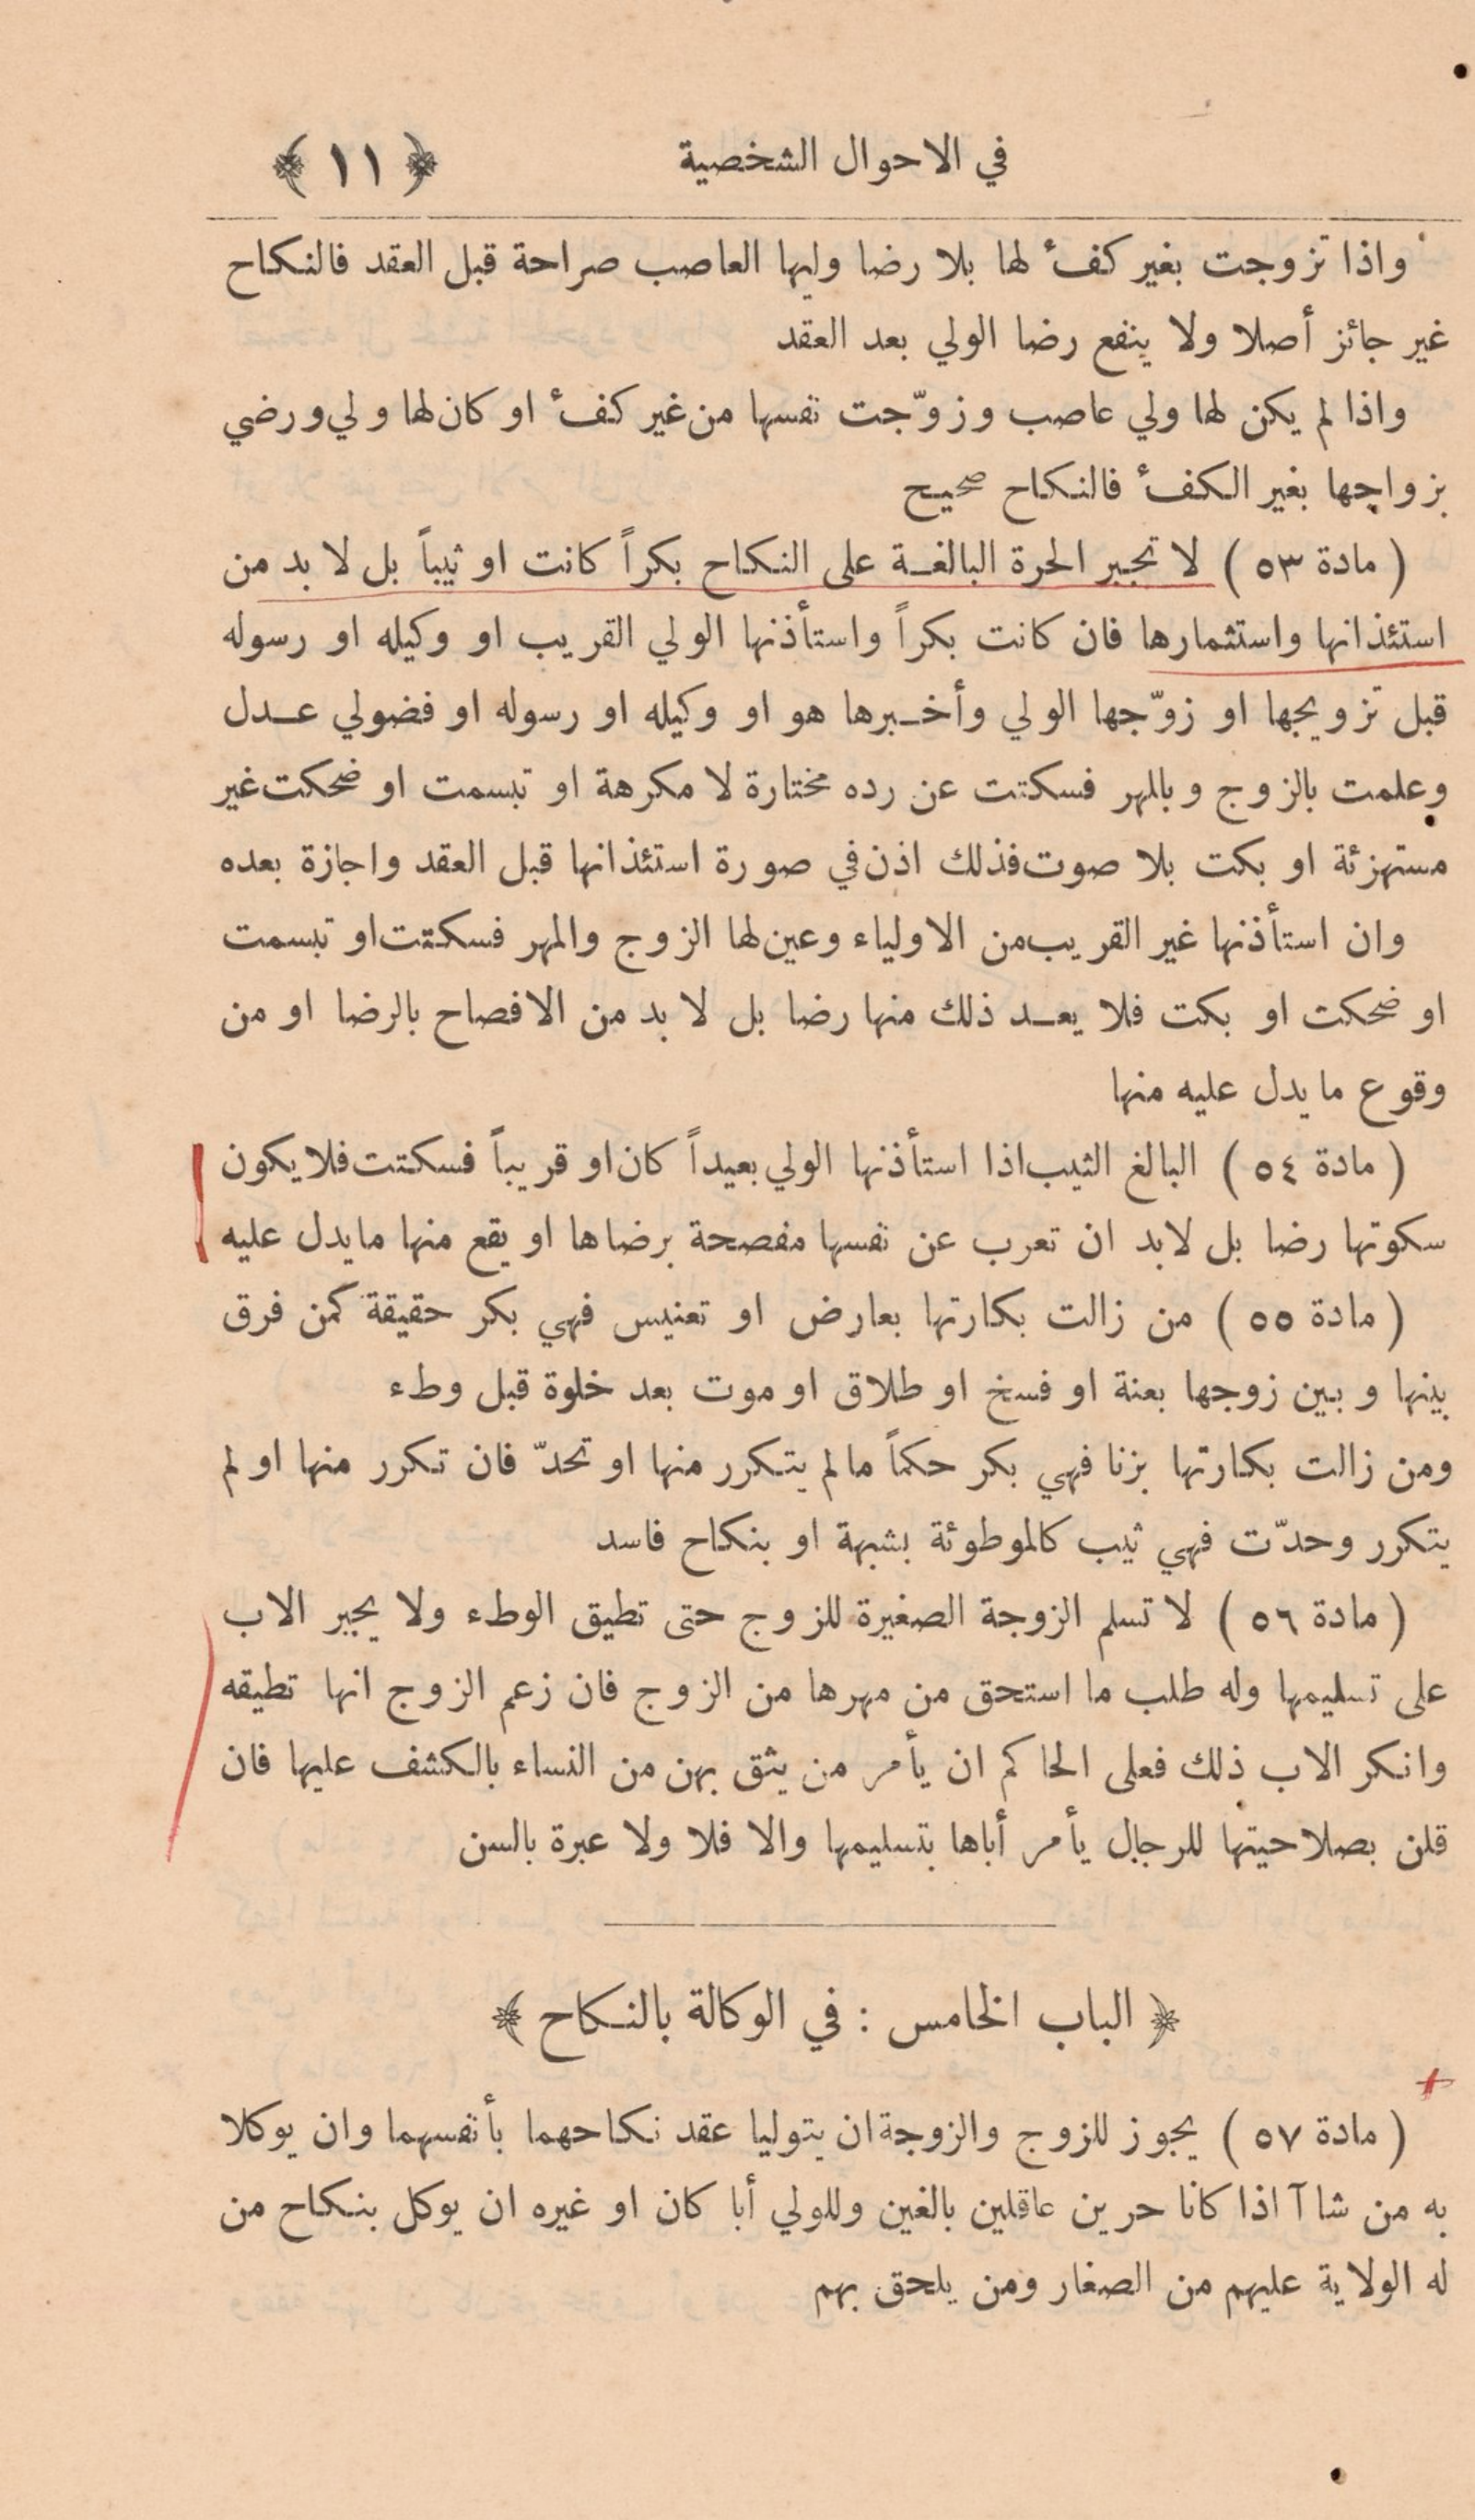 في الاحوال الشخصية ﴿ ١١ ﴾
واذا تزوجت بغير كفءٔ لها بلا رضا وليها العاصب صراحة قبل العقد فالنكاح
غير جائز أصلا ولا ينفع رضا الولي بعد العقد
واذا لم يكن لها ولي عاصب وزوّجت نفسها من غير كفءٔ او كان لها ولي ورضي
بزواجها بغير الكفءٔ فالنكاح صحيح
( مادة ٥٣ ) لا تجبر الحرة البالغة على النكاح بكراً كانت او ثيباً بل لا بد من
استئذانها واستئمارها فان كانت بكراً واستأذنها الولي القريب او وكيله او رسوله
قبل تزويجها او زوّجها الولي وأخبرها هو او وكيله او رسوله او فضولي عدل
وعلمت بالزوج وبالمهر فسكتت عن رده مختارة لا مكرهة او تبسمت او ضحكت غير
مستهزئة او بكت بلا صوت فذلك اذن في صورة استئذانها قبل العقد واجازة بعده
وان استأذنها غير القريب من الاولياء وعين لها الزوج والمهر فسكتت او تبسمت
او ضحكت او بكت فلا يعد ذلك منها رضا بل لا بد من الافصاح بالرضا او من
وقوع ما يدل عليه منها
( مادة ٥٤ ) البالغ الثيب اذا استأذنها الولي بعيداً كان او قريباً فسكتت فلا يكون
سكوتها رضا بل لابد ان تعرب عن نفسها مفصحة برضاها او يقع منها ما يدل عليه
( مادة ٥٥ ) من زالت بكارتها بعارض او تعنيس فهي بكر حقيقة كمن فرق
بينها وبين زوجها بعنة او فسخ او طلاق او موت بعد خلوة قبل وطء
ومن زالت بكارتها بزنا فهي بكر حكماً ما لم يتكرر منها او تحدّ فان تكرر منها او لم
يتكرر وحدّت فهي ثيب كالموطوئة بشبهة او بنكاح فاسد
( مادة ٥٦ ) لا تسلم الزوجة الصغيرة للزوج حتى تطيق الوطء ولا يجبر الاب
على تسليمها وله طلب ما استحق من مهرها من الزوج فان زعم الزوج انها تطيقه
وانكر الاب ذلك فعلى الحاكم ان يأمر من يثق بهن من النساء بالكشف عليها فان
قلن بصلاحيتها للرجال يأمر أباها بتسليمها والا فلا ولا عبرة بالسن
﴿ الباب الخامس : في الوكالة بالنكاح ﴾
( مادة ٥٧ ) يجوز للزوج والزوجة ان يتوليا عقد نكاحهما بأنفسهما وان يوكلا
به من شاآ اذا كانا حرين عاقلين بالغين وللولي أبا كان او غيره ان يوكل بنكاح من
له الولاية عليهم من الصغار ومن يلحق بهم